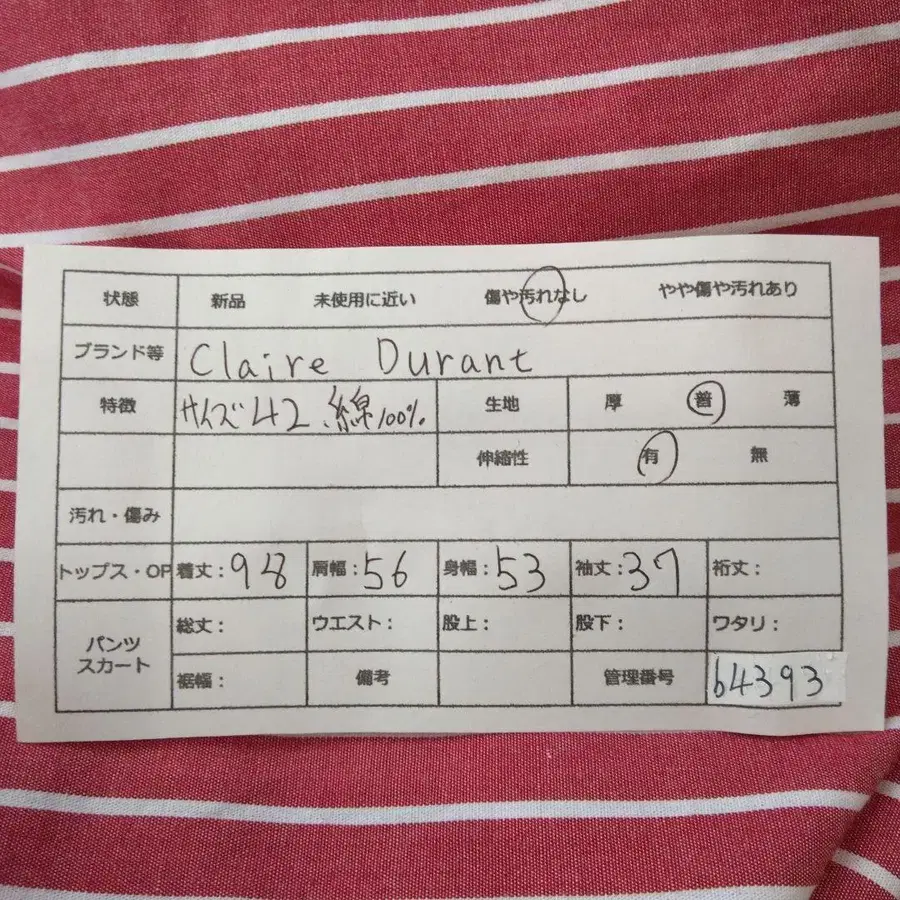 状態 新品 未使用に近い 傷や汚れなし やや傷や汚れあり
ブランド等 Claire Durant
特徴 サイズ42、綿100% 生地 厚 普 薄
伸縮性 有 無
汚れ・傷み
トップス・OP 着丈：98 肩幅：56 身幅：53 袖丈：37 裄丈：
パンツ スカート 総丈： ウエスト： 股上： 股下： ワタリ：
裾幅： 備考 管理番号 b4393